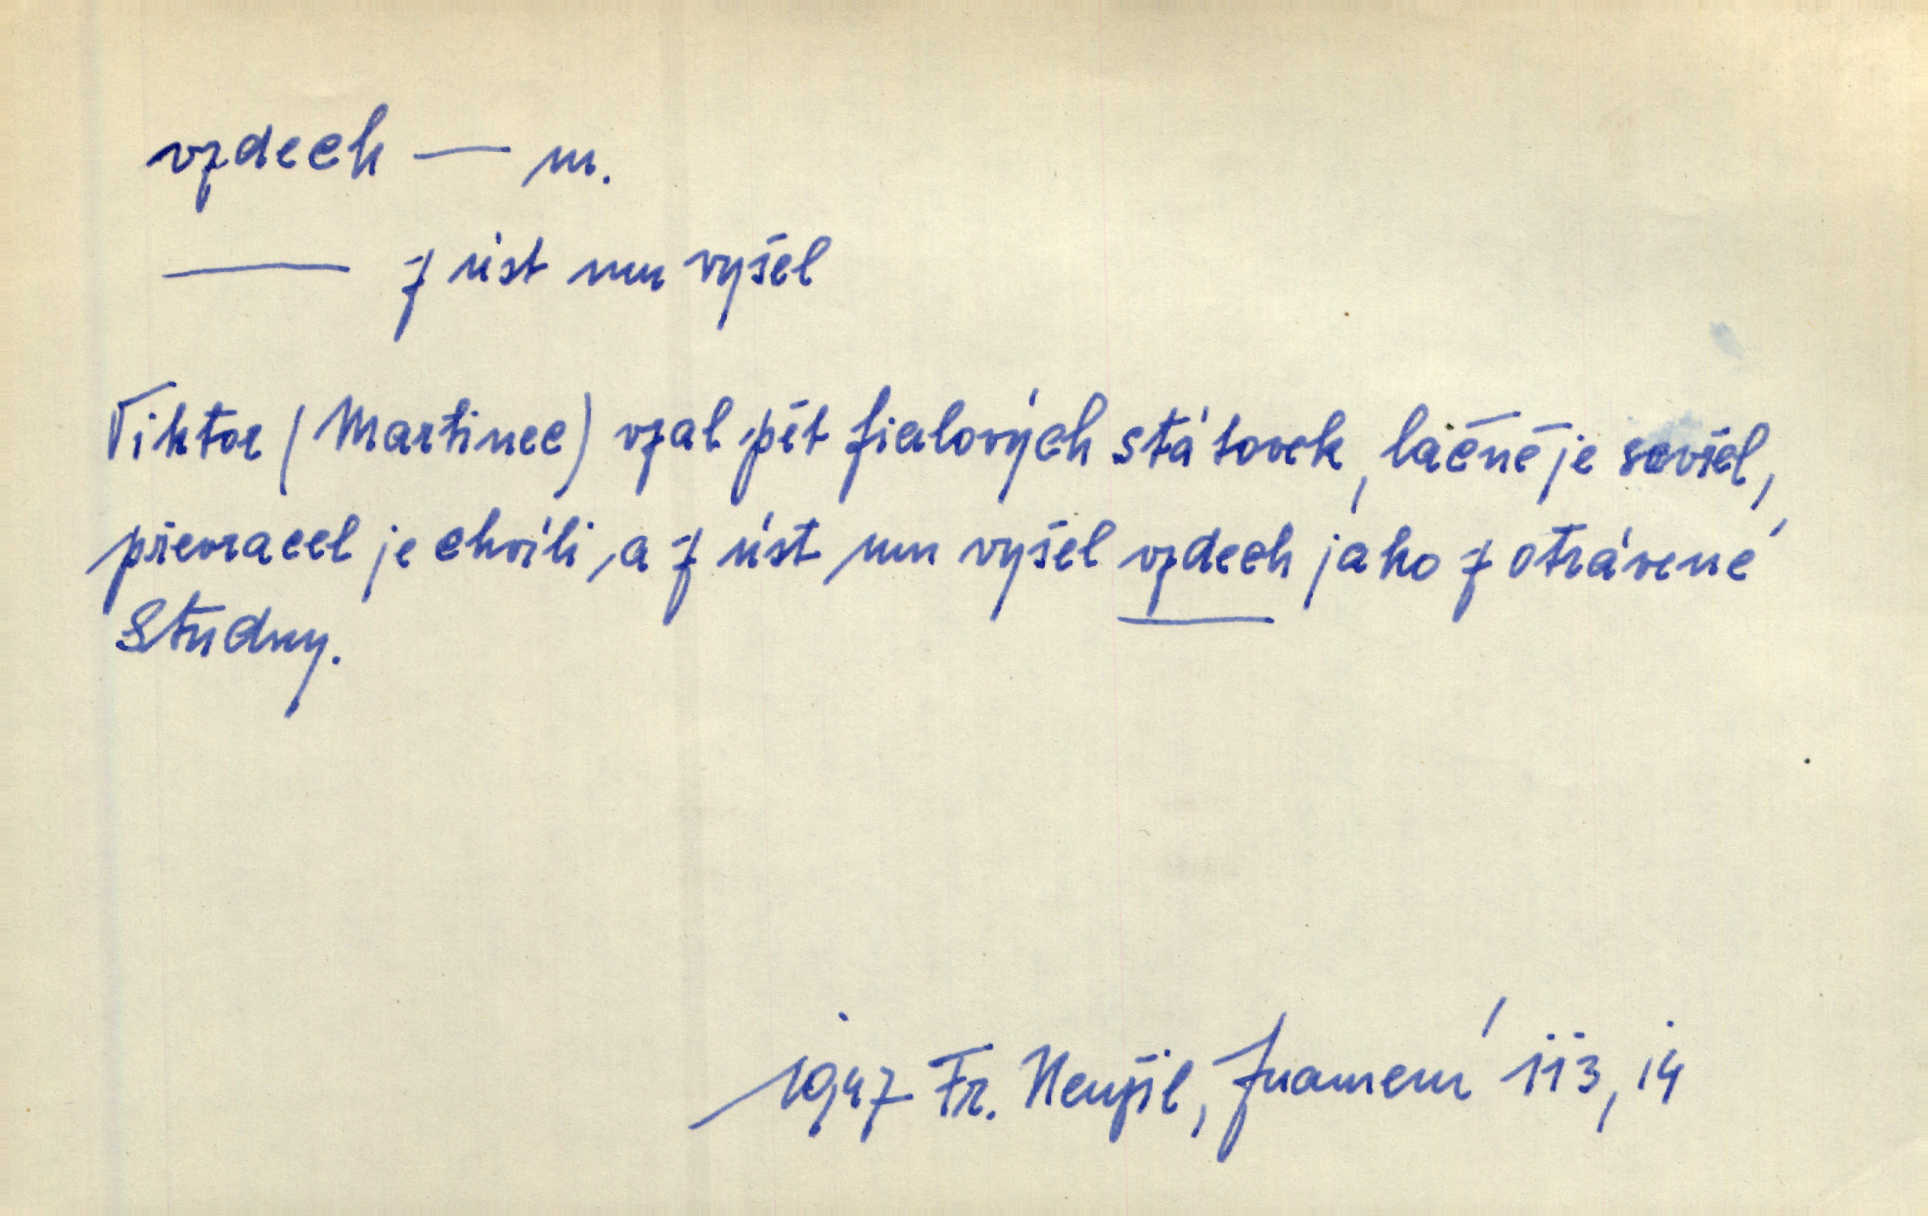 vzdech — m.
— z úst mu vyšel
Viktor (Martinec) vzal pět fialových státovek, lačně je sevřel,
převracel je chvíli, a z úst mu vyšel vzdech jako z otrávené
studny.
1947 Fr. Neužil, Znamení 113, 14